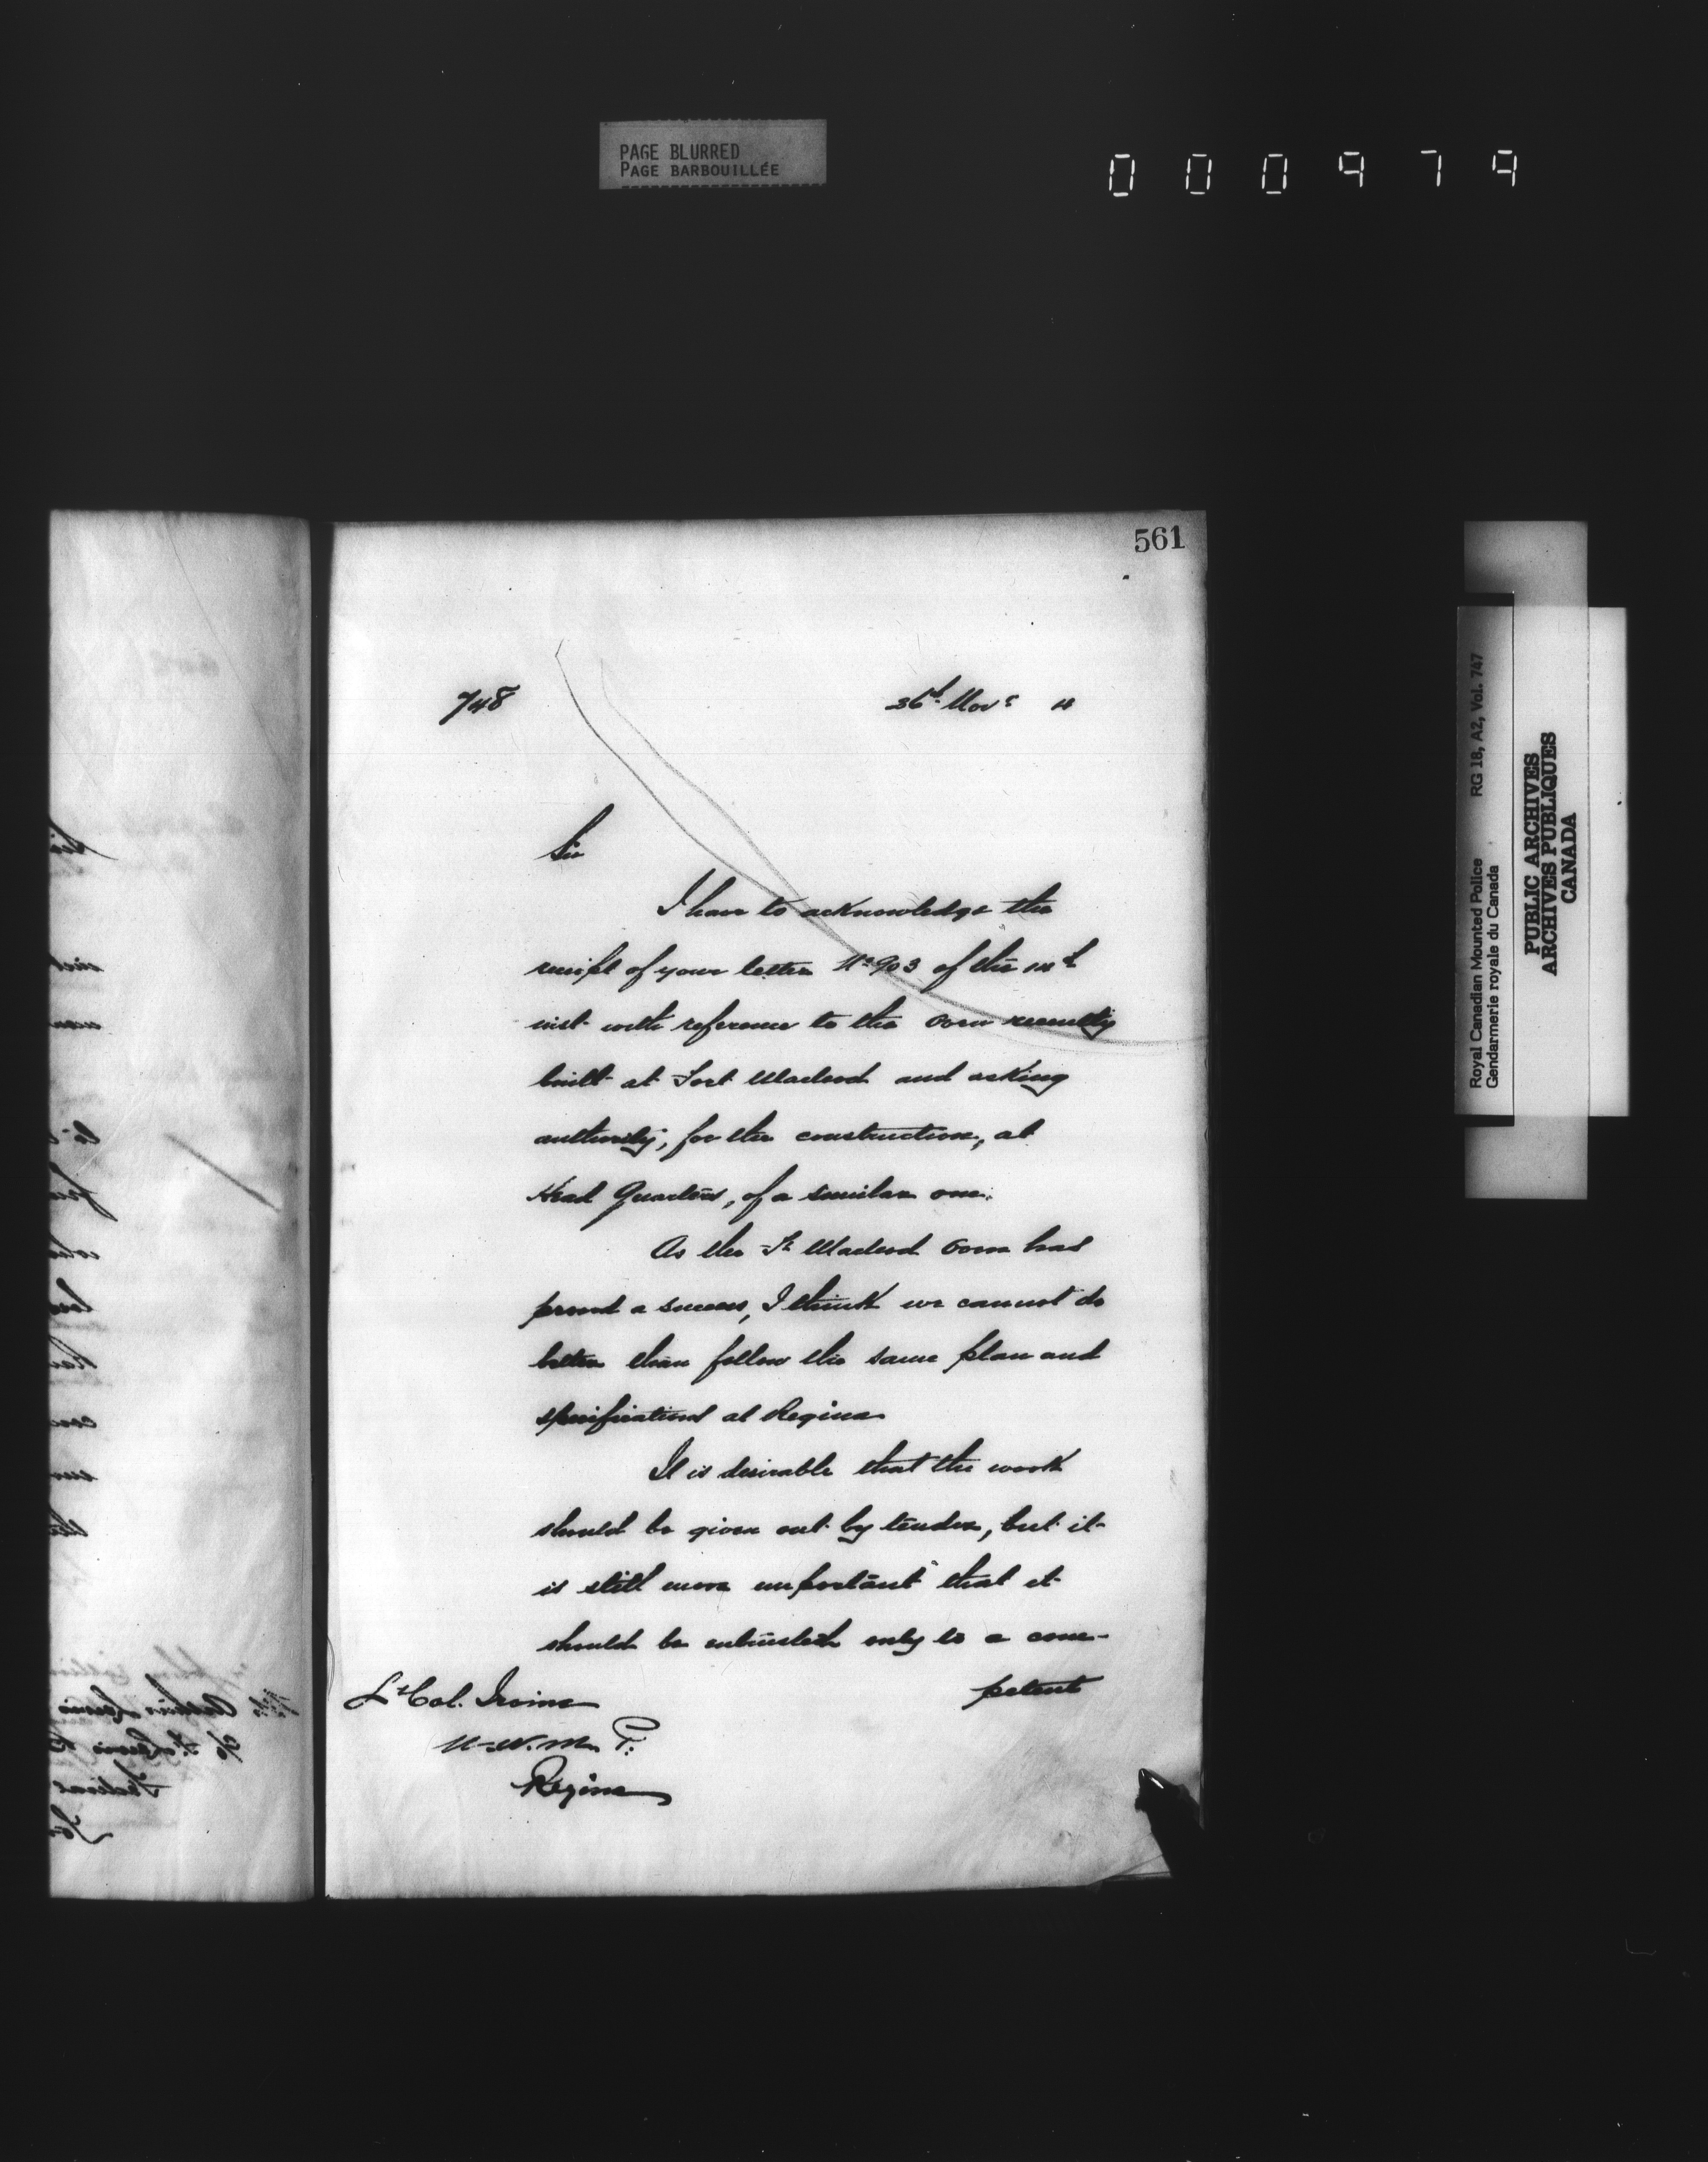 PAGE BLURRED
PAGE BARBOUILLÉE
000979
561
748
26th Novr 4
Sir
I have to acknowledge the
receipt of your letter No 903 of the 14th
inst. with reference to the oven recently
built at Fort Macleod and asking
authority, for the construction, at
Head Quarters, of a similar one.
As the Ft Macleod oven has
proved a success, I think we cannot do
better than follow the same plan and
specifications at Regina
It is desirable that the work
should be given out by tender, but it
is still more important that it
should be entrusted only to a com-
petent
Lt Col. Irvine
N.W.M.P.
Regina
Royal Canadian Mounted Police RG 18, A2, Vol. 747
Gendarmerie royale du Canada
PUBLIC ARCHIVES
ARCHIVES PUBLIQUES
CANADA